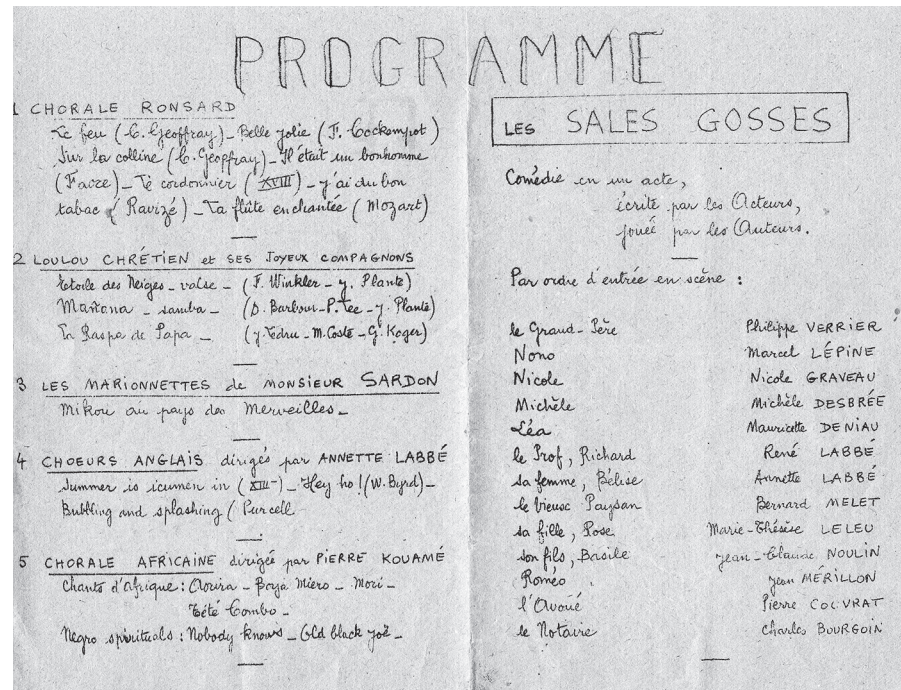 PROGRAMME
1 CHORALE RONSARD
Le feu (C. Geoffray) - Belle jolie (F. Cockempot)
Sur la colline (C. Geoffray) - Il était un bonhomme
(Favre) - Le cordonnier (XVIII) - j'ai du bon
tabac (Ravizé) - La flûte enchantée (Mozart)
2 LOULOU CHRÉTIEN et SES JOYEUX COMPAGNONS
Etoile des Neiges - valse - (F. Winkler - J. Plante)
Mañana - samba - (D. Barbour - P. Lee - J. Plante)
La Raspa de Papa - (J. Ledru - M. Coste - G. Koger)
3 LES MARIONNETTES de MONSIEUR SARDON
Mikou au pays des Merveilles -
4 CHOEURS ANGLAIS dirigés par ANNETTE LABBÉ
Summer is icumen in (XIII) - Hey ho! (W. Byrd) -
Bubbling and splashing (Purcell
5 CHORALE AFRICAINE dirigée par PIERRE KOUAMÉ
Chants d'Afrique : - Boya Miero - Mori -
Tété Combo -
Negro spirituals : Nobody knows - Old black Joë -
LES SALES GOSSES
Comédie en un acte,
écrite par les Acteurs,
jouée par les Auteurs.
Par ordre d'entrée en scène :
le Grand-Père Philippe VERRIER
Nono Marcel LÉPINE
Nicole Nicole GRAVEAU
Michèle Michèle DESBRÉE
Léa Mauricette DENIAU
le Prof, Richard René LABBÉ
sa femme, Bélise Annette LABBÉ
le vieux Paysan Bernard MELET
sa fille, Rose Marie-Thésèse LELEU
son fils, Basile Jean-Claude NOULIN
Roméo Jean MÉRILLON
l'Avoué Pierre COUVRAT
le Notaire Charles BOURGOIN